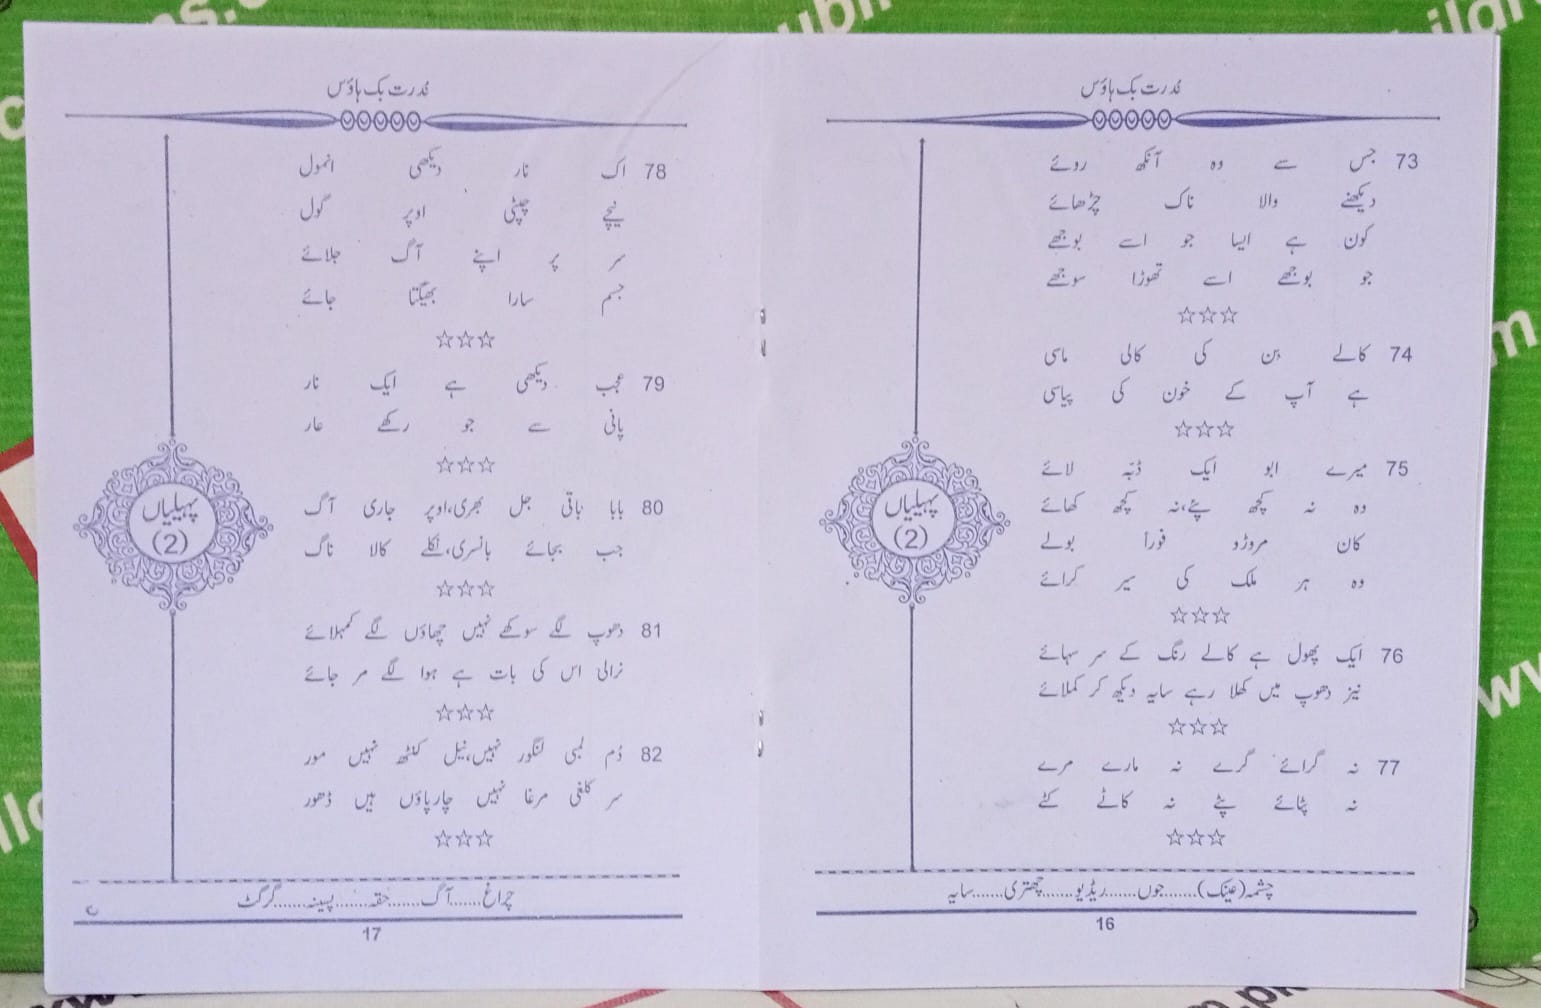 نُدرت بک ہاؤس
73 جس سے وہ آنکھ روئے
دیکھنے والا ناک چڑھائے
کون ہے ایسا جو اسے بوجھے
جو بوجھے اسے تھوڑا سوجھے
☆☆☆
74 کالے بن کی کالی ماسی
ہے آپ کے خون کی پیاسی
☆☆☆
75 میرے ابو ایک ڈبّہ لائے
وہ نہ کچھ پئے،نہ کچھ کھائے
کان مروڑو فوراً بولے
وہ ہر ملک کی سیر کرائے
☆☆☆
76 ایک پھول ہے کالے رنگ کے سر سہائے
تیز دھوپ میں کھلا رہے سایہ دیکھ کر کملائے
☆☆☆
77 نہ گرائے گرے نہ مارے مرے
نہ پٹائے پٹے نہ کاٹے کٹے
☆☆☆
پہیلیاں
(2)
چشمہ(عینک)......جوں......ریڈیو......چھتری......سایہ
16
نُدرت بک ہاؤس
78 اک نار دیکھی انمول
نیچے چپٹی اوپر گول
سر پر اپنے آگ جلائے
جسم سارا بھیگتا جائے
☆☆☆
79 عجب دیکھی ہے ایک نار
پانی سے جو رکھے عار
☆☆☆
80 بابا باقی جل بھری،اوپر جاری آگ
جب بجائے بانسری،نکلے کالا ناگ
☆☆☆
81 دھوپ لگے سوکھے نہیں چھاؤں لگے کمہلائے
نرالی اس کی بات ہے ہوا لگے مر جائے
☆☆☆
82 دُم لمبی لنگور نہیں،نیل کنٹھ نہیں مور
سر کلغی مرغا نہیں چارپاؤں ہیں ڈھور
☆☆☆
پہیلیاں
(2)
چراغ......آگ......حقہ......پسینہ......گرگٹ
17